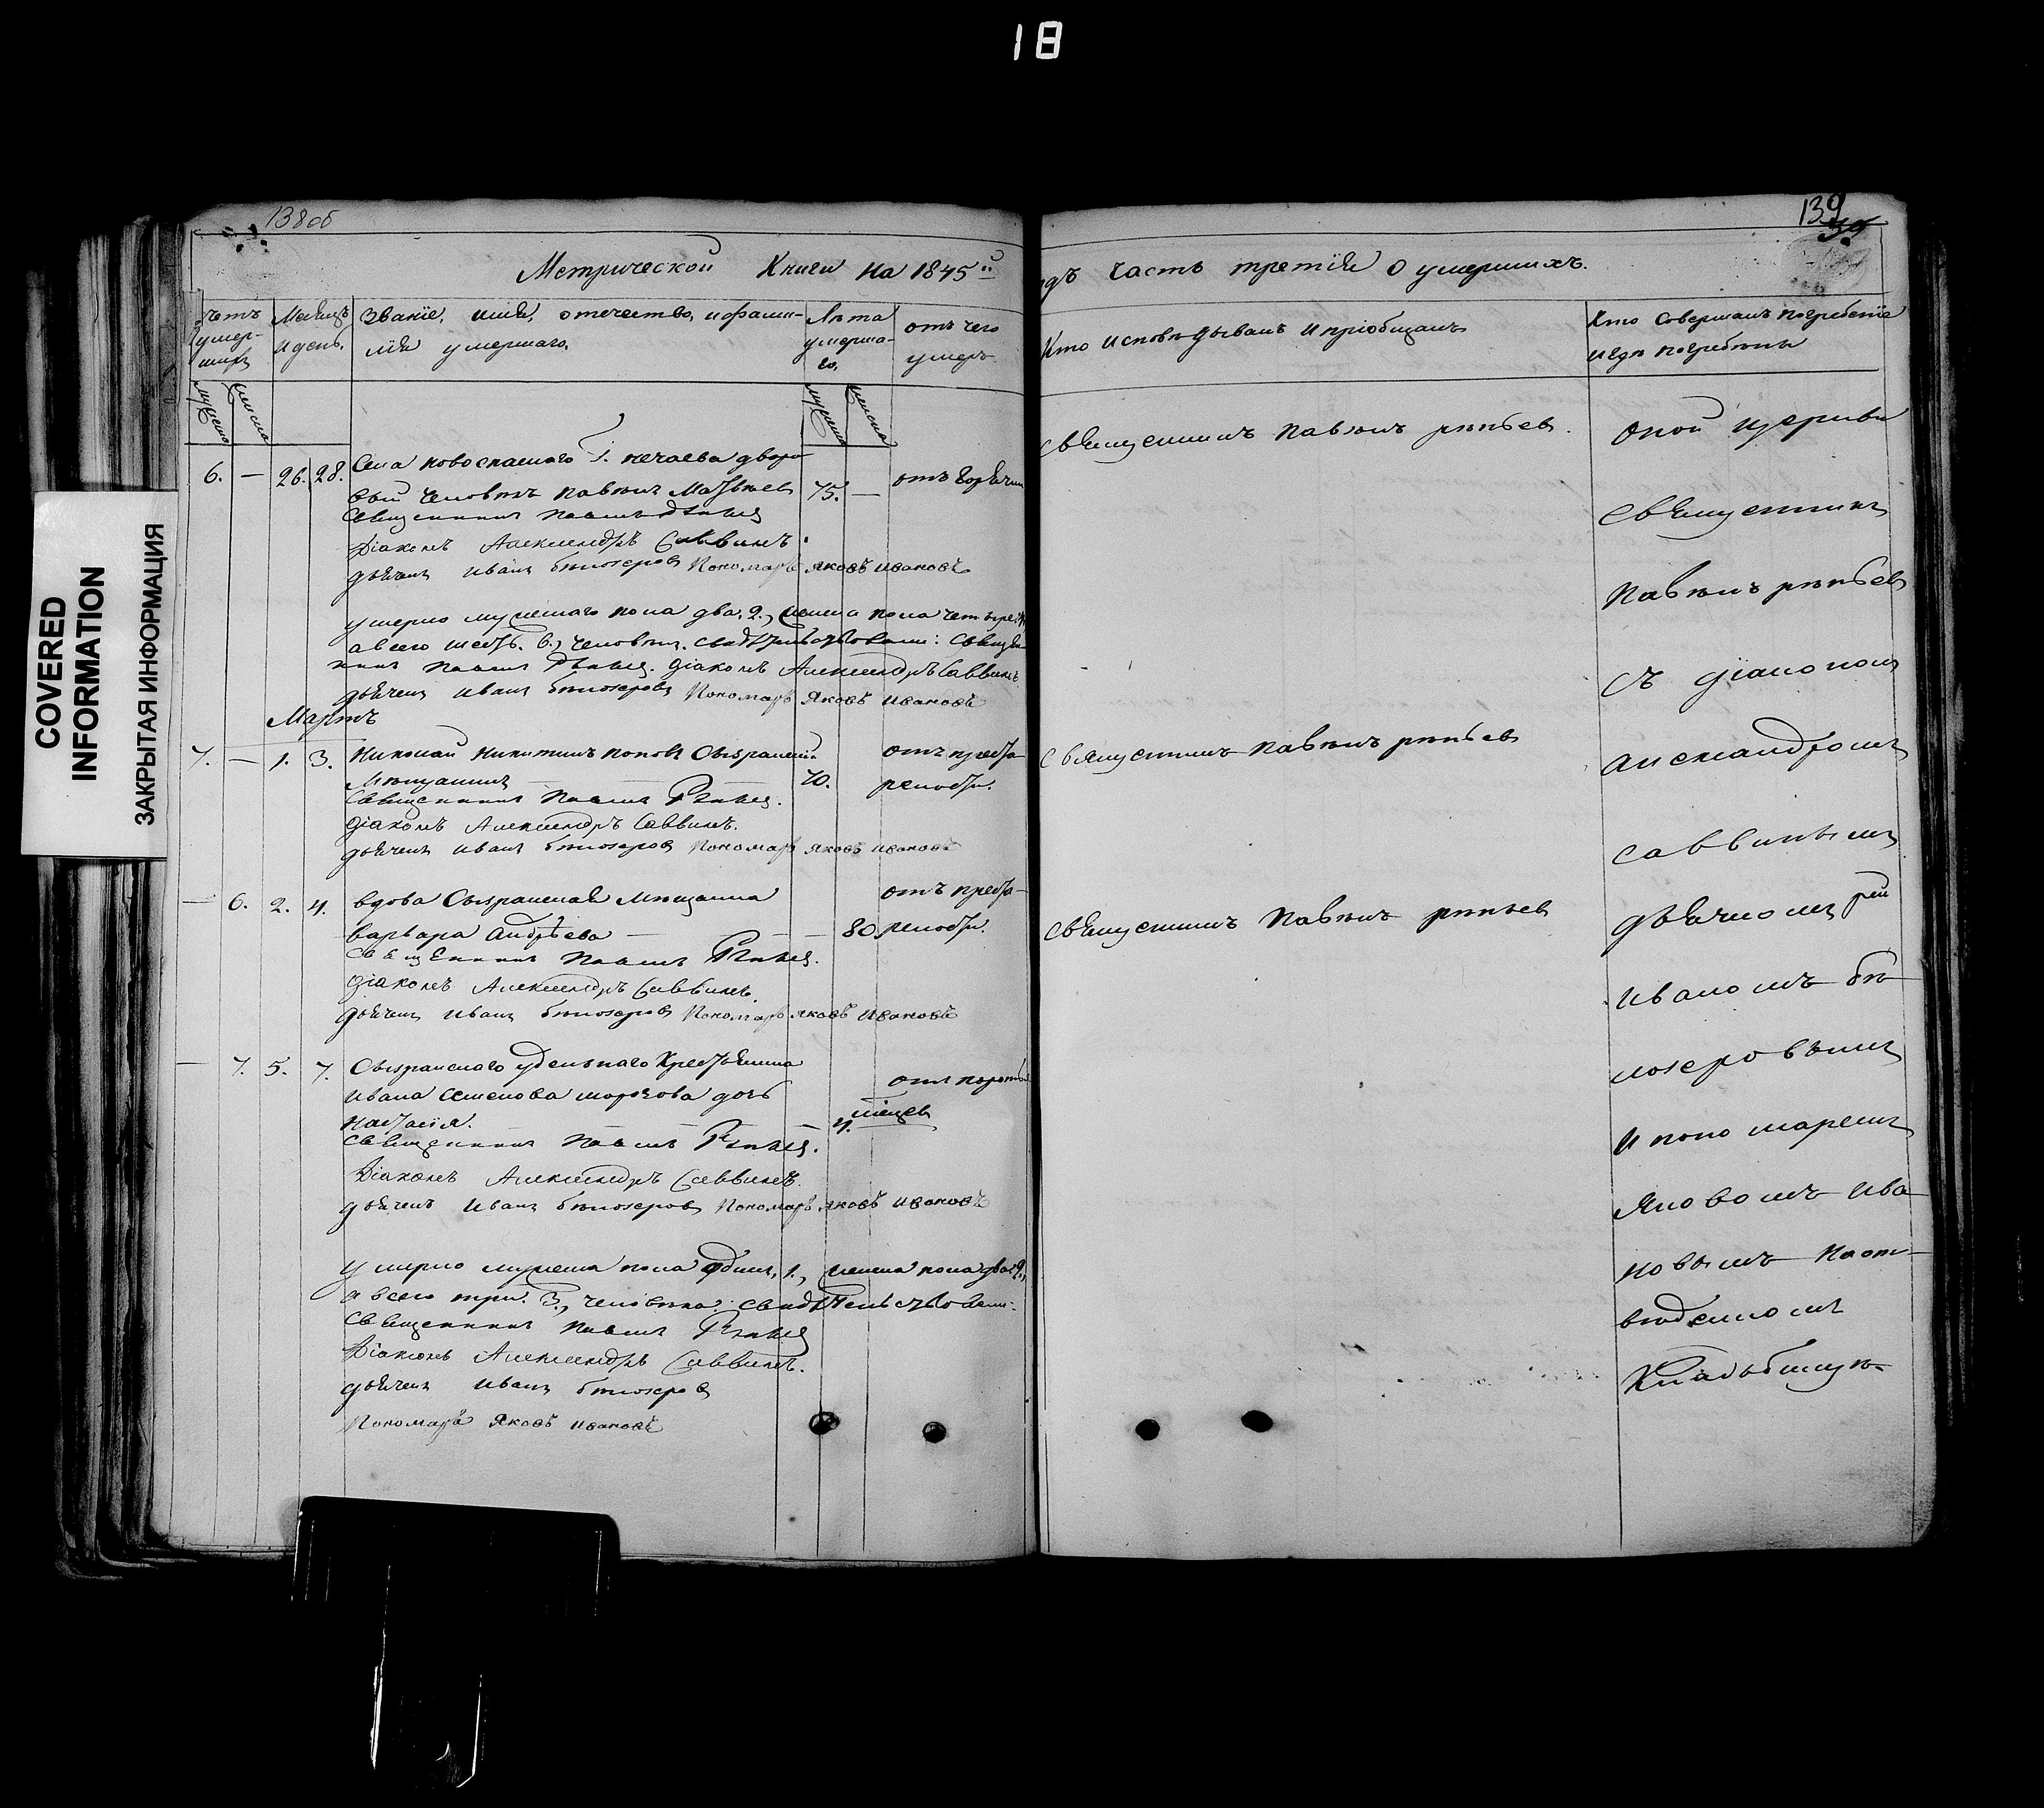 18
COVERED
INFORMATION
ЗАКРЫТАЯ ИНФОРМАЦИЯ
138об
Метрической Книги на 1845й
Счетъ умер-
шихъ
Мѣсяцъ
и день.
Званіе, имя, отечество, и фами-
лія умершаго.
Лѣта
умерша-
го.
отъ чего
умеръ
мужеска
женска
мужеска
женска
6. — 26. 28. Села новоспаскаго Г. нечаева дворо-
вый человѣкъ павелъ Матвѣевъ 75. — отъ Горячки
Священникъ Павелъ
Діаконъ Александръ Саввинъ.
дьячекъ иванъ бѣлозеровъ Пономарь яковъ ивановъ
умерло мужескаго пола два. 2., женска пола четыре.
а всего шесть. 6., человѣкъ. свидѣтельствовали: Священ-
никъ Павелъ діаконъ Александръ Саввинъ.
дьячекъ иванъ бѣлозеровъ Пономарь яковъ ивановъ
Мартъ
7. — 1. 3. Николай Никитинъ поповъ Сызранскій отъ преста-
Мѣщанинъ 70. релости.
Священникъ Павелъ
діаконъ Александръ Саввинъ.
дьячекъ иванъ бѣлозеровъ Пономарь яковъ ивановъ
— 6. 2. 4. вдова Сызранская Мѣщанка отъ преста-
варвара Андрѣева — 80 релости.
Священникъ Павелъ
діаконъ Александръ Саввинъ.
дьячекъ иванъ бѣлозеровъ Пономарь яковъ ивановъ
— 7. 5. 7. Сызранскаго удельнаго Крестьянина
ивана семенова морозова дочь
настасія. 4.
Священникъ Павелъ
Діаконъ Александръ Саввинъ.
дьячекъ иванъ бѣлозеровъ Пономарь яковъ ивановъ
умерло мужеска пола одинъ, 1., женска пола два 2.,
а всего три. 3., человѣка: свидѣтельствовали:
Священникъ Павелъ
Діаконъ Александръ Саввинъ.
дьячекъ иванъ бѣлозеровъ
Пономарь яковъ ивановъ
139
годъ часть третія о умершихъ.
Кто исповѣдывалъ и пріобщалъ
Кто совершалъ погребеніе
и гдѣ погребены
Священникъ павелъ
Священникъ павелъ
Священникъ павелъ
оной церкви
священникъ
павелъ
съ діакономъ
александромъ
саввинымъ
дьячкомъ
иваномъ бѣ-
лозеровымъ
и пономаремъ
яковомъ ива-
новымъ на от-
веденномъ
Кладьбищѣ.